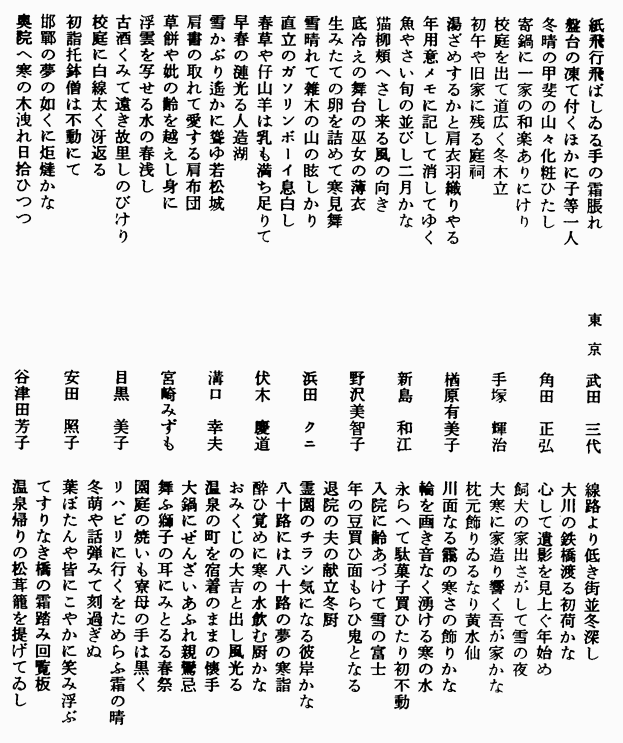 紙飛行飛ばしゐる手の霜脹れ
盤台の凍て付くほかに子等一人
冬晴の甲斐の山々化粧ひたし
寄鍋に一家の和楽ありにけり
校庭を出て道広く冬木立
初午や旧家に残る庭祠
湯ざめするかと肩衣羽織りやる
年用意メモに記して消してゆく
魚やさい旬の並びし二月かな
猫柳頬へさし来る風の向き
底冷えの舞台の巫女の薄衣
生みたての卵を詰めて寒見舞
雪晴れて雑木の山の眩しかり
直立のガソリンボーイ息白し
春草や仔山羊は乳も満ち足りて
早春の漣光る人造湖
雪かぶり遙かに聳ゆ若松城
肩書の取れて愛する肩布団
草餅や妣の齢を越えし身に
浮雲を写せる水の春浅し
古酒くみて遠き故里しのびけり
校庭に白線太く冴返る
初詣托鉢僧は不動にて
邯鄲の夢の如くに炬燵かな
奥院へ寒の木洩れ日拾ひつつ
東京 武田 三代
角田 正弘
手塚 輝治
楢原有美子
新島 和江
野沢美智子
浜田 クニ
伏木 慶道
溝口 幸夫
宮崎みずも
目黒 美子
安田 照子
谷津田芳子
線路より低き街並冬深し
大川の鉄橋渡る初荷かな
心して遺影を見上ぐ年始め
飼犬の家出さがして雪の夜
大寒に家造り響く吾が家かな
枕元飾りゐるなり黄水仙
川面なる靄の寒さの飾りかな
輪を画き音なく湧ける寒の水
永らへて駄菓子買ひたり初不動
入院に齢あづけて雪の富士
年の豆買ひ面もらひ鬼となる
退院の夫の献立冬厨
霊園のチラシ気になる彼岸かな
八十路には八十路の夢の寒詣
酔ひ覚めに寒の水飲む厨かな
おみくじの大吉と出し風光る
温泉の町を宿着のままの懐手
大鍋にぜんざいあふれ親鸞忌
舞ふ獅子の耳にみとるる春祭
園庭の焼いも寮母の手は黒く
リハビリに行くをためらふ霜の晴
冬萌や話弾みて刻過ぎぬ
葉ぼたんや皆にこやかに笑み浮ぶ
てすりなき橋の霜踏み回覧板
温泉帰りの松茸籠を提げてゐし